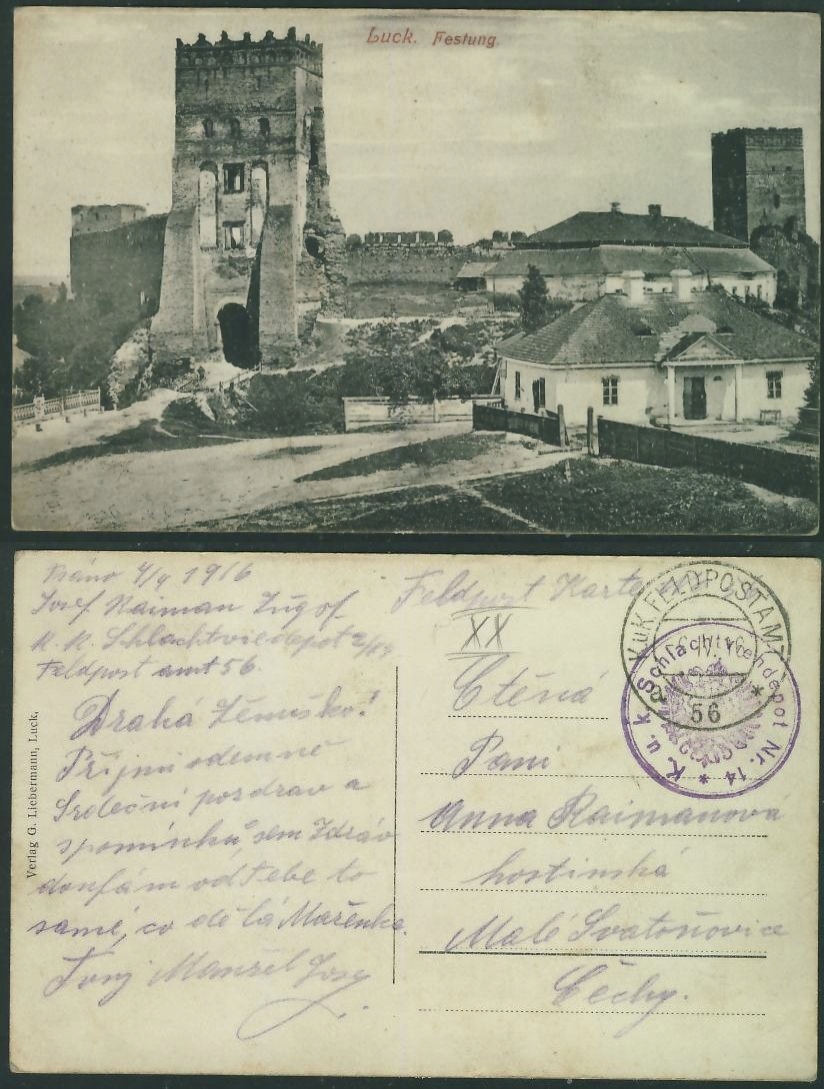 Luck. Festung.
Psáno 4/9 1916
Josef Raiman Zugsf.
K. K. Schlachtviedepot 2/14
Feldpost amt 56.
Feldpost Karte
XX
Drahá Ženuško!
Přijmi odemně
Srdečni pozdrav a
spomínku, sem Zdráv
doufám od Tebe to
samé, co dělá Mařenka.
Tvuj Manžel Josef
Ctěná
Paní
Anna Raimanová
hostinská
Malé Svatoňovice
Čechy.
K.u.K. FELDPOSTAMT
56
K. u. k. Schlachtviehdepot Nr. 14
Verlag G. Liebermann, Luck,